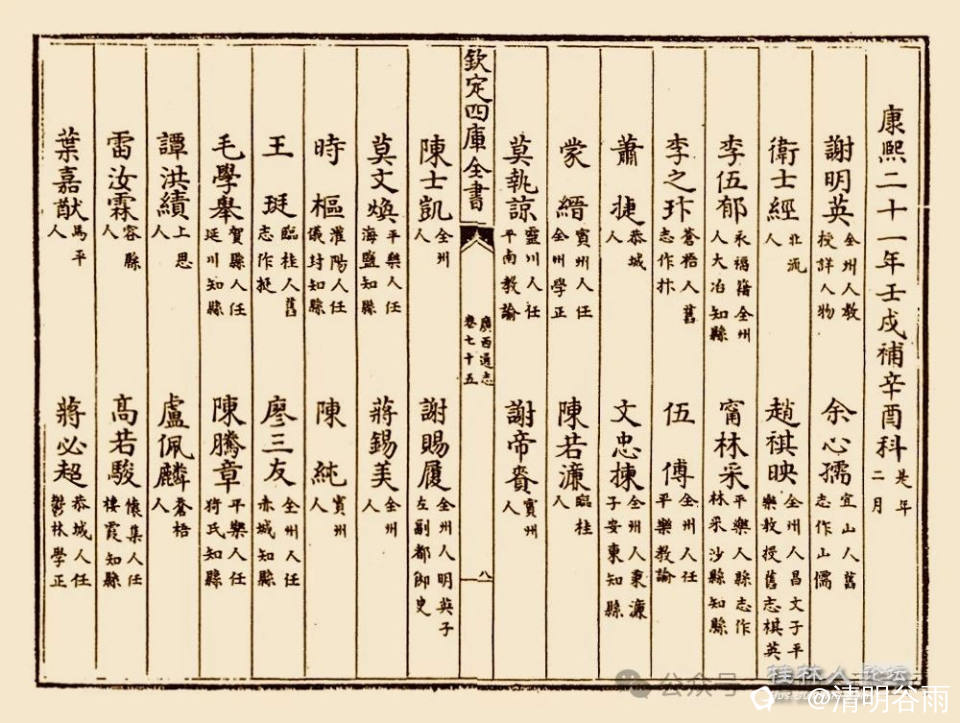 康熙二十一年壬戌補辛酉科 是年二月
謝明英 全州人教授詳人物 余心孺 宜山人舊志作山儒
衛士經 北流人 趙祺映 全州人昌文子平樂教授舊志棋英
李伍郁 永福籍全州人大冶知縣 甯林采 平樂人縣志作林采沙縣知縣
李之玣 蒼梧人舊志作抃 伍傅 全州人任平樂教諭
蕭捷 恭城人 文忠揀 全州人秉濂子安東知縣
蒙縉 賓州人任全州學正 陳若濂 臨桂人
莫執諒 靈川人任平南教諭 謝帝賚 賓州人
欽定四庫全書 廣西通志卷七十五 八
陳士凱 全州人 謝賜履 全州人明英子左副都御史
莫文煥 平樂人任海鹽知縣 蔣錫美 全州人
時樞 灌陽人任儀封知縣 陳純 賓州人
王珽 臨桂人舊志作挺 廖三友 全州人任赤城知縣
毛學舉 賀縣人任延川知縣 陳騰章 平樂人任猗氏知縣
譚洪績 上思人 盧佩麟 蒼梧人
雷汝霖 容縣人 高若駿 懷集人任棲霞知縣
葉嘉猷 馬平人 蔣必超 恭城人任鬱林學正
公众号
桂林人论坛
@清明谷雨